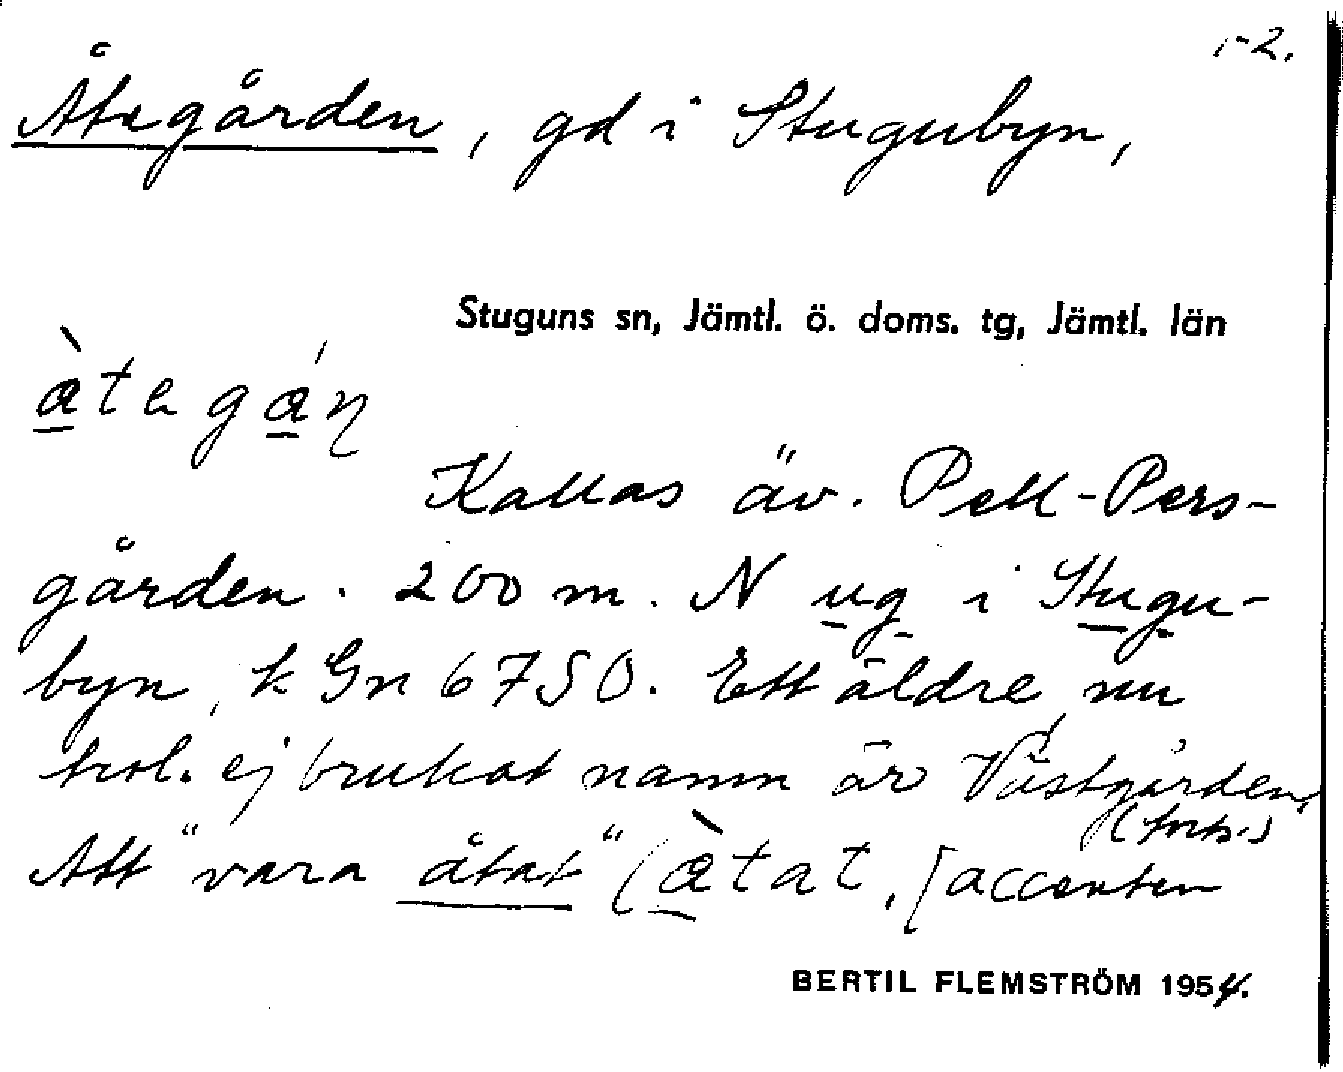 1-2.
Åtegården, gd i Stugubyn,
Stuguns sn, Jämtl. ö. doms. tg, Jämtl. län
àtegáɳ
Kallas äv. Pell-Pers-
gården. 200 m. N ug i Stugu-
byn, k Gn 6750. Ett äldre, nu
trol. ej brukat namn är Västgården,
Att "vara åtat" (àtat, [accenten
BERTIL FLEMSTRÖM 1954.